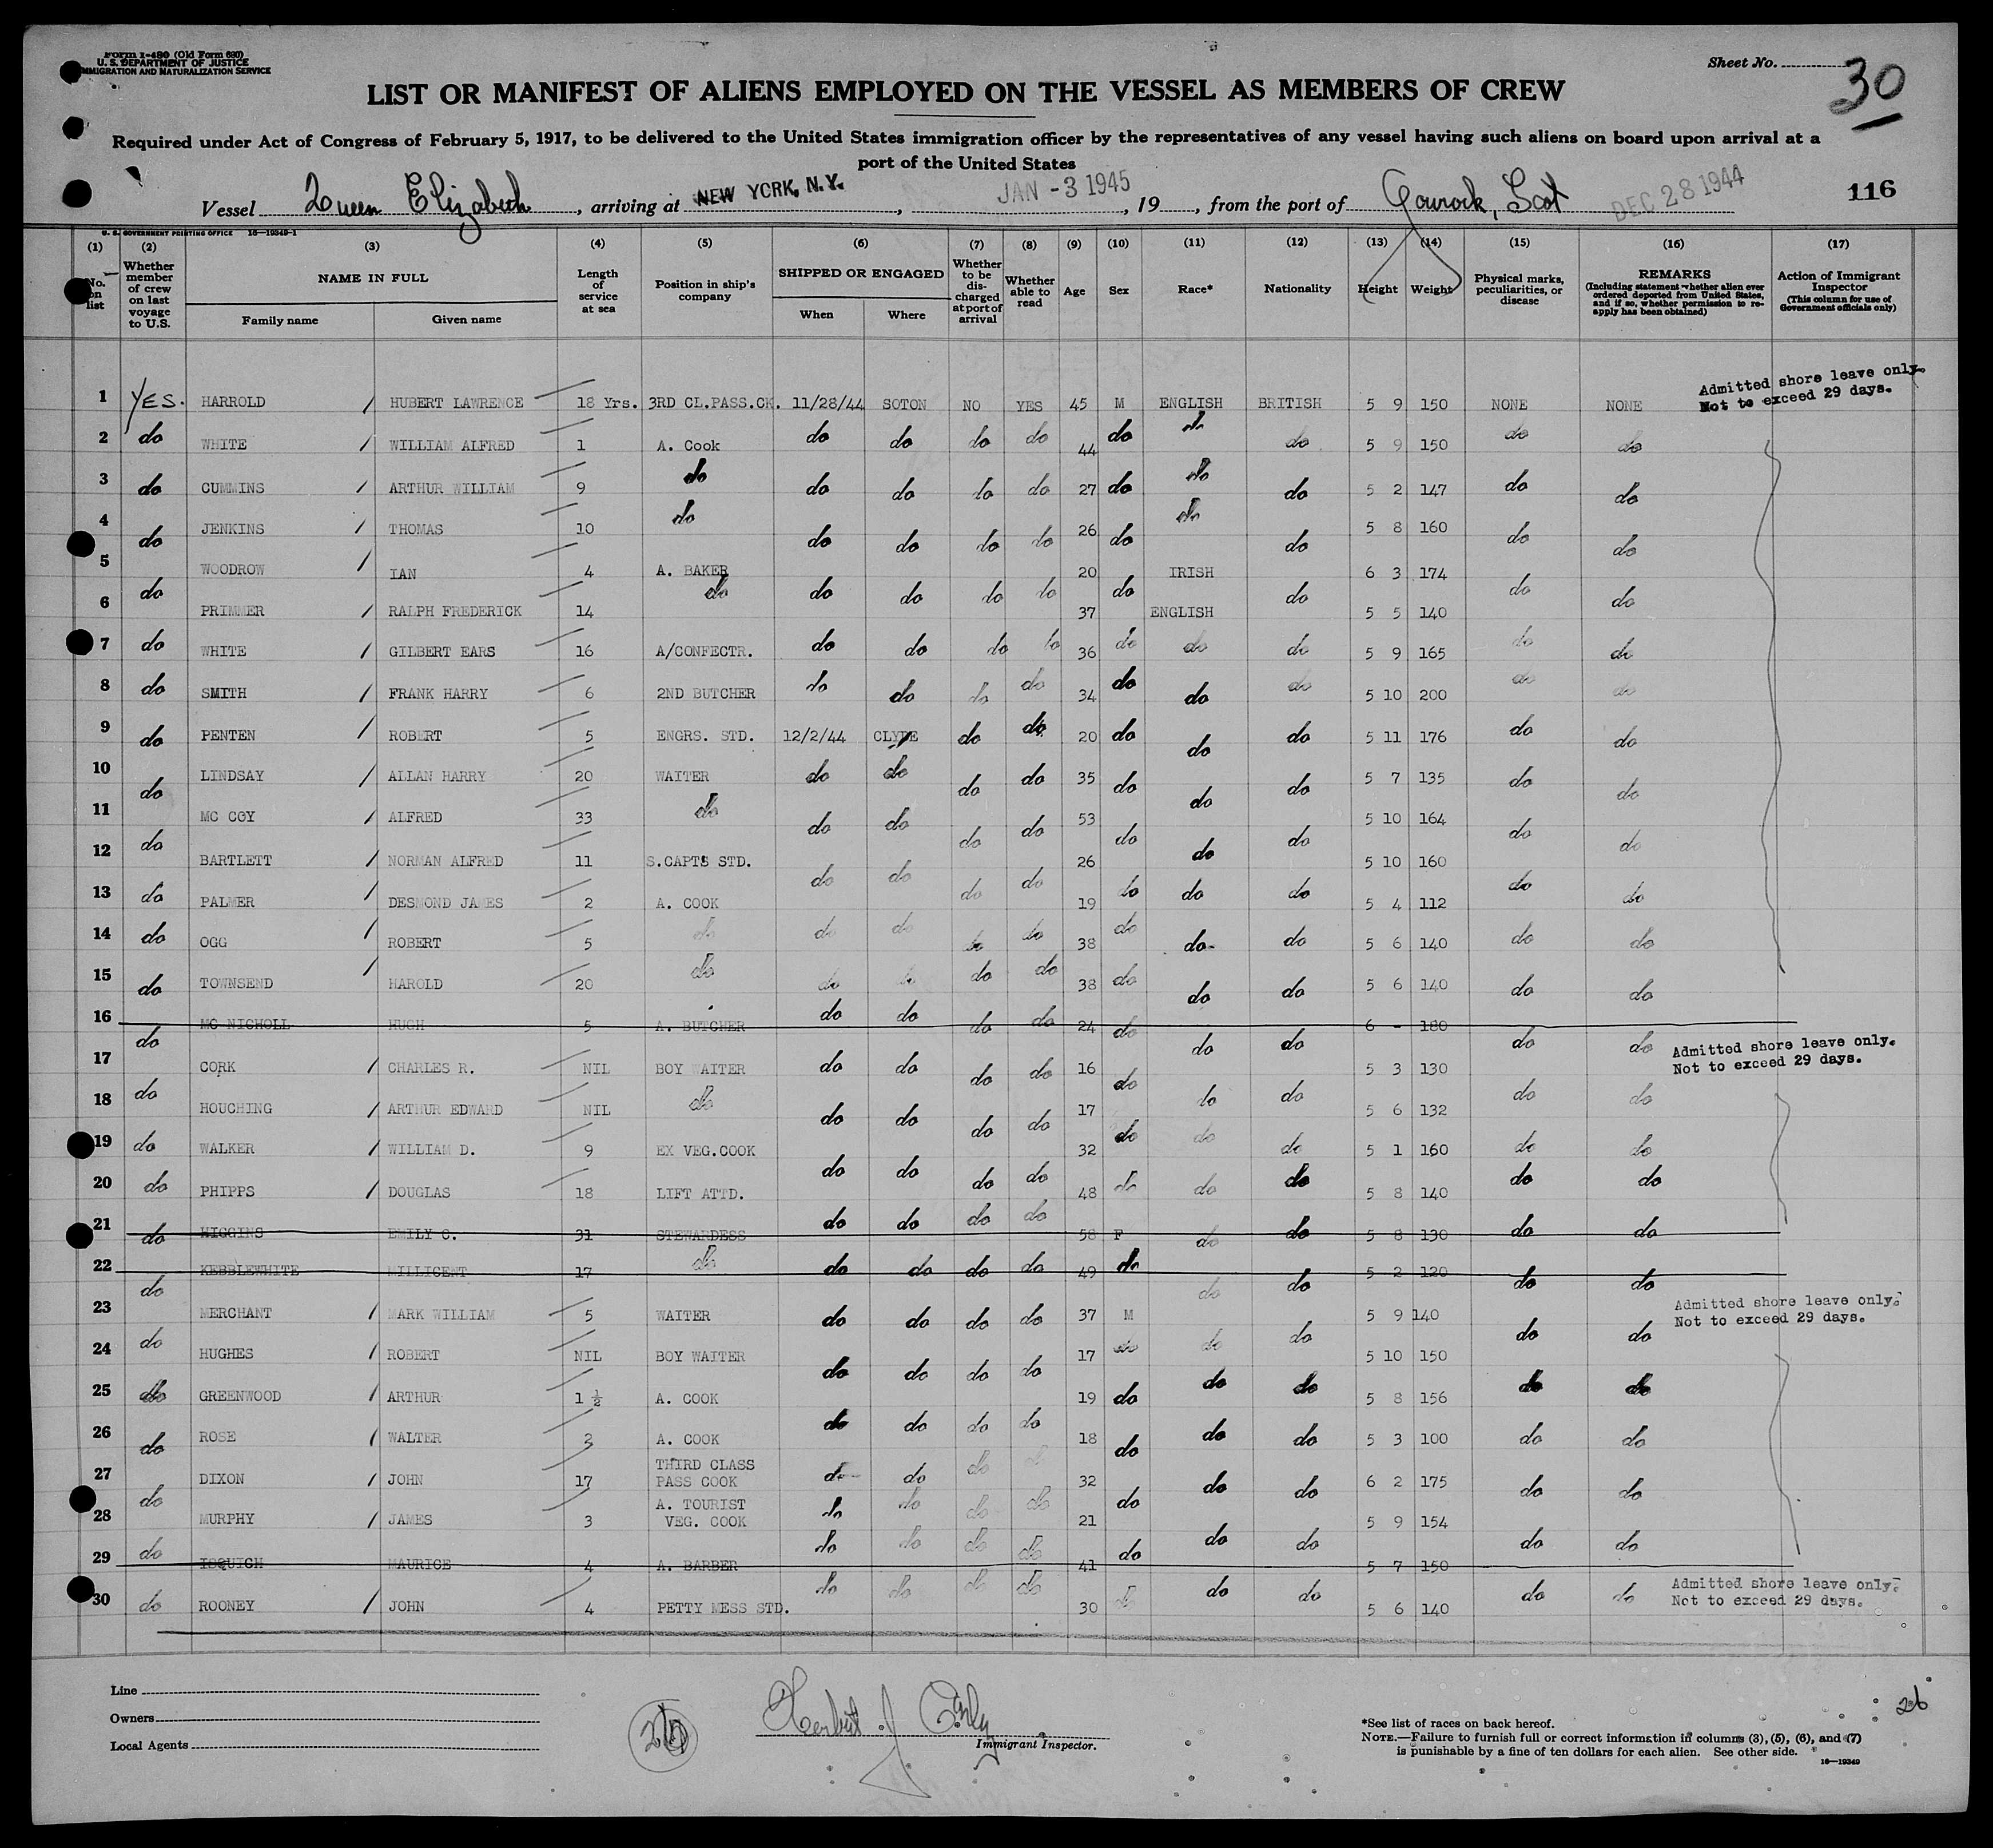 Form I-480 (Old Form 680)
U. S. DEPARTMENT OF JUSTICE
IMMIGRATION AND NATURALIZATION SERVICE
Sheet No. 30
LIST OR MANIFEST OF ALIENS EMPLOYED ON THE VESSEL AS MEMBERS OF CREW
Required under Act of Congress of February 5, 1917, to be delivered to the United States immigration officer by the representatives of any vessel having such aliens on board upon arrival at a
port of the United States
Vessel Queen Elizabeth, arriving at NEW YORK, N.Y., JAN -3 1945, 19, from the port of Gourock, Scot DEC 28 1944 116
U. S. GOVERNMENT PRINTING OFFICE 16—19349-1
(1) No. on list
(2) Whether member of crew on last voyage to U.S.
(3) NAME IN FULL Family name Given name
(4) Length of service at sea
(5) Position in ship's company
(6) SHIPPED OR ENGAGED When Where
(7) Whether to be discharged at port of arrival
(8) Whether able to read
(9) Age
(10) Sex
(11) Race*
(12) Nationality
(13) Height
(14) Weight
(15) Physical marks, peculiarities, or disease
(16) REMARKS (Including statement whether alien ever ordered deported from United States, and if so, whether permission to re-apply has been obtained)
(17) Action of Immigrant Inspector (This column for use of Government officials only)
1 YES. HARROLD HUBERT LAWRENCE 18 Yrs. 3RD CL.PASS.CK. 11/28/44 SOTON NO YES 45 M ENGLISH BRITISH 5 9 150 NONE NONE Admitted shore leave only. Not to exceed 29 days.
2 do WHITE WILLIAM ALFRED 1 A. Cook do do do do 44 do do do 5 9 150 do do
3 do CUMMINS ARTHUR WILLIAM 9 do do do do do 27 do do do 5 2 147 do do
4 do JENKINS THOMAS 10 do do do do do 26 do do do 5 8 160 do do
5 do WOODROW IAN 4 A. BAKER do do do do 20 do IRISH do 6 3 174 do do
6 do PRIMMER RALPH FREDERICK 14 do do do do do 37 do ENGLISH do 5 5 140 do do
7 do WHITE GILBERT EARS 16 A/CONFECTR. do do do do 36 do do do 5 9 165 do do
8 do SMITH FRANK HARRY 6 2ND BUTCHER do do do do 34 do do do 5 10 200 do do
9 do PENTEN ROBERT 5 ENGRS. STD. 12/2/44 CLYDE do do 20 do do do 5 11 176 do do
10 do LINDSAY ALLAN HARRY 20 WAITER do do do do 35 do do do 5 7 135 do do
11 do MC COY ALFRED 33 do do do do do 53 do do do 5 10 164 do do
12 do BARTLETT NORMAN ALFRED 11 S.CAPTS STD. do do do do 26 do do do 5 10 160 do do
13 do PALMER DESMOND JAMES 2 A. COOK do do do do 19 do do do 5 4 112 do do
14 do OGG ROBERT 5 do do do do do 38 do do do 5 6 140 do do
15 do TOWNSEND HAROLD 20 do do do do do 38 do do do 5 6 140 do do
16 do MC NICHOLL HUGH 5 A. BUTCHER do do do do 24 do do do 6 - 180 do do
17 do CORK CHARLES R. NIL BOY WAITER do do do do 16 do do do 5 3 130 do do Admitted shore leave only. Not to exceed 29 days.
18 do HOUCHING ARTHUR EDWARD NIL do do do do do 17 do do do 5 6 132 do do
19 do WALKER WILLIAM D. 9 EX VEG.COOK do do do do 32 do do do 5 1 160 do do
20 do PHIPPS DOUGLAS 18 LIFT ATTD. do do do do 48 do do do 5 8 140 do do
21 do HIGGINS EMILY C. 31 STEWARDESS do do do do 58 F do do 5 8 130 do do
22 do KEBBLEWHITE MILLICENT 17 do do do do do 49 do do do 5 2 120 do do
23 do MERCHANT MARK WILLIAM 5 WAITER do do do do 37 M do do 5 9 140 do do Admitted shore leave only. Not to exceed 29 days.
24 do HUGHES ROBERT NIL BOY WAITER do do do do 17 do do do 5 10 150 do do
25 do GREENWOOD ARTHUR 1 ½ A. COOK do do do do 19 do do do 5 8 156 do do
26 do ROSE WALTER 2 A. COOK do do do do 18 do do do 5 3 100 do do
27 do DIXON JOHN 17 THIRD CLASS PASS COOK do do do do 32 do do do 6 2 175 do do
28 do MURPHY JAMES 3 A. TOURIST VEG. COOK do do do do 21 do do do 5 9 154 do do
29 do ISQUICH MAURICE 4 A. BARBER do do do do 41 do do do 5 7 150 do do
30 do ROONEY JOHN 4 PETTY MESS STD. do do do do 30 do do do 5 6 140 do do Admitted shore leave only. Not to exceed 29 days.
Line
Owners
Local Agents
26
Herbert J.
Immigrant Inspector.
*See list of races on back hereof.
NOTE.—Failure to furnish full or correct information in columns (3), (5), (6), and (7)
is punishable by a fine of ten dollars for each alien. See other side.
16—19349
26